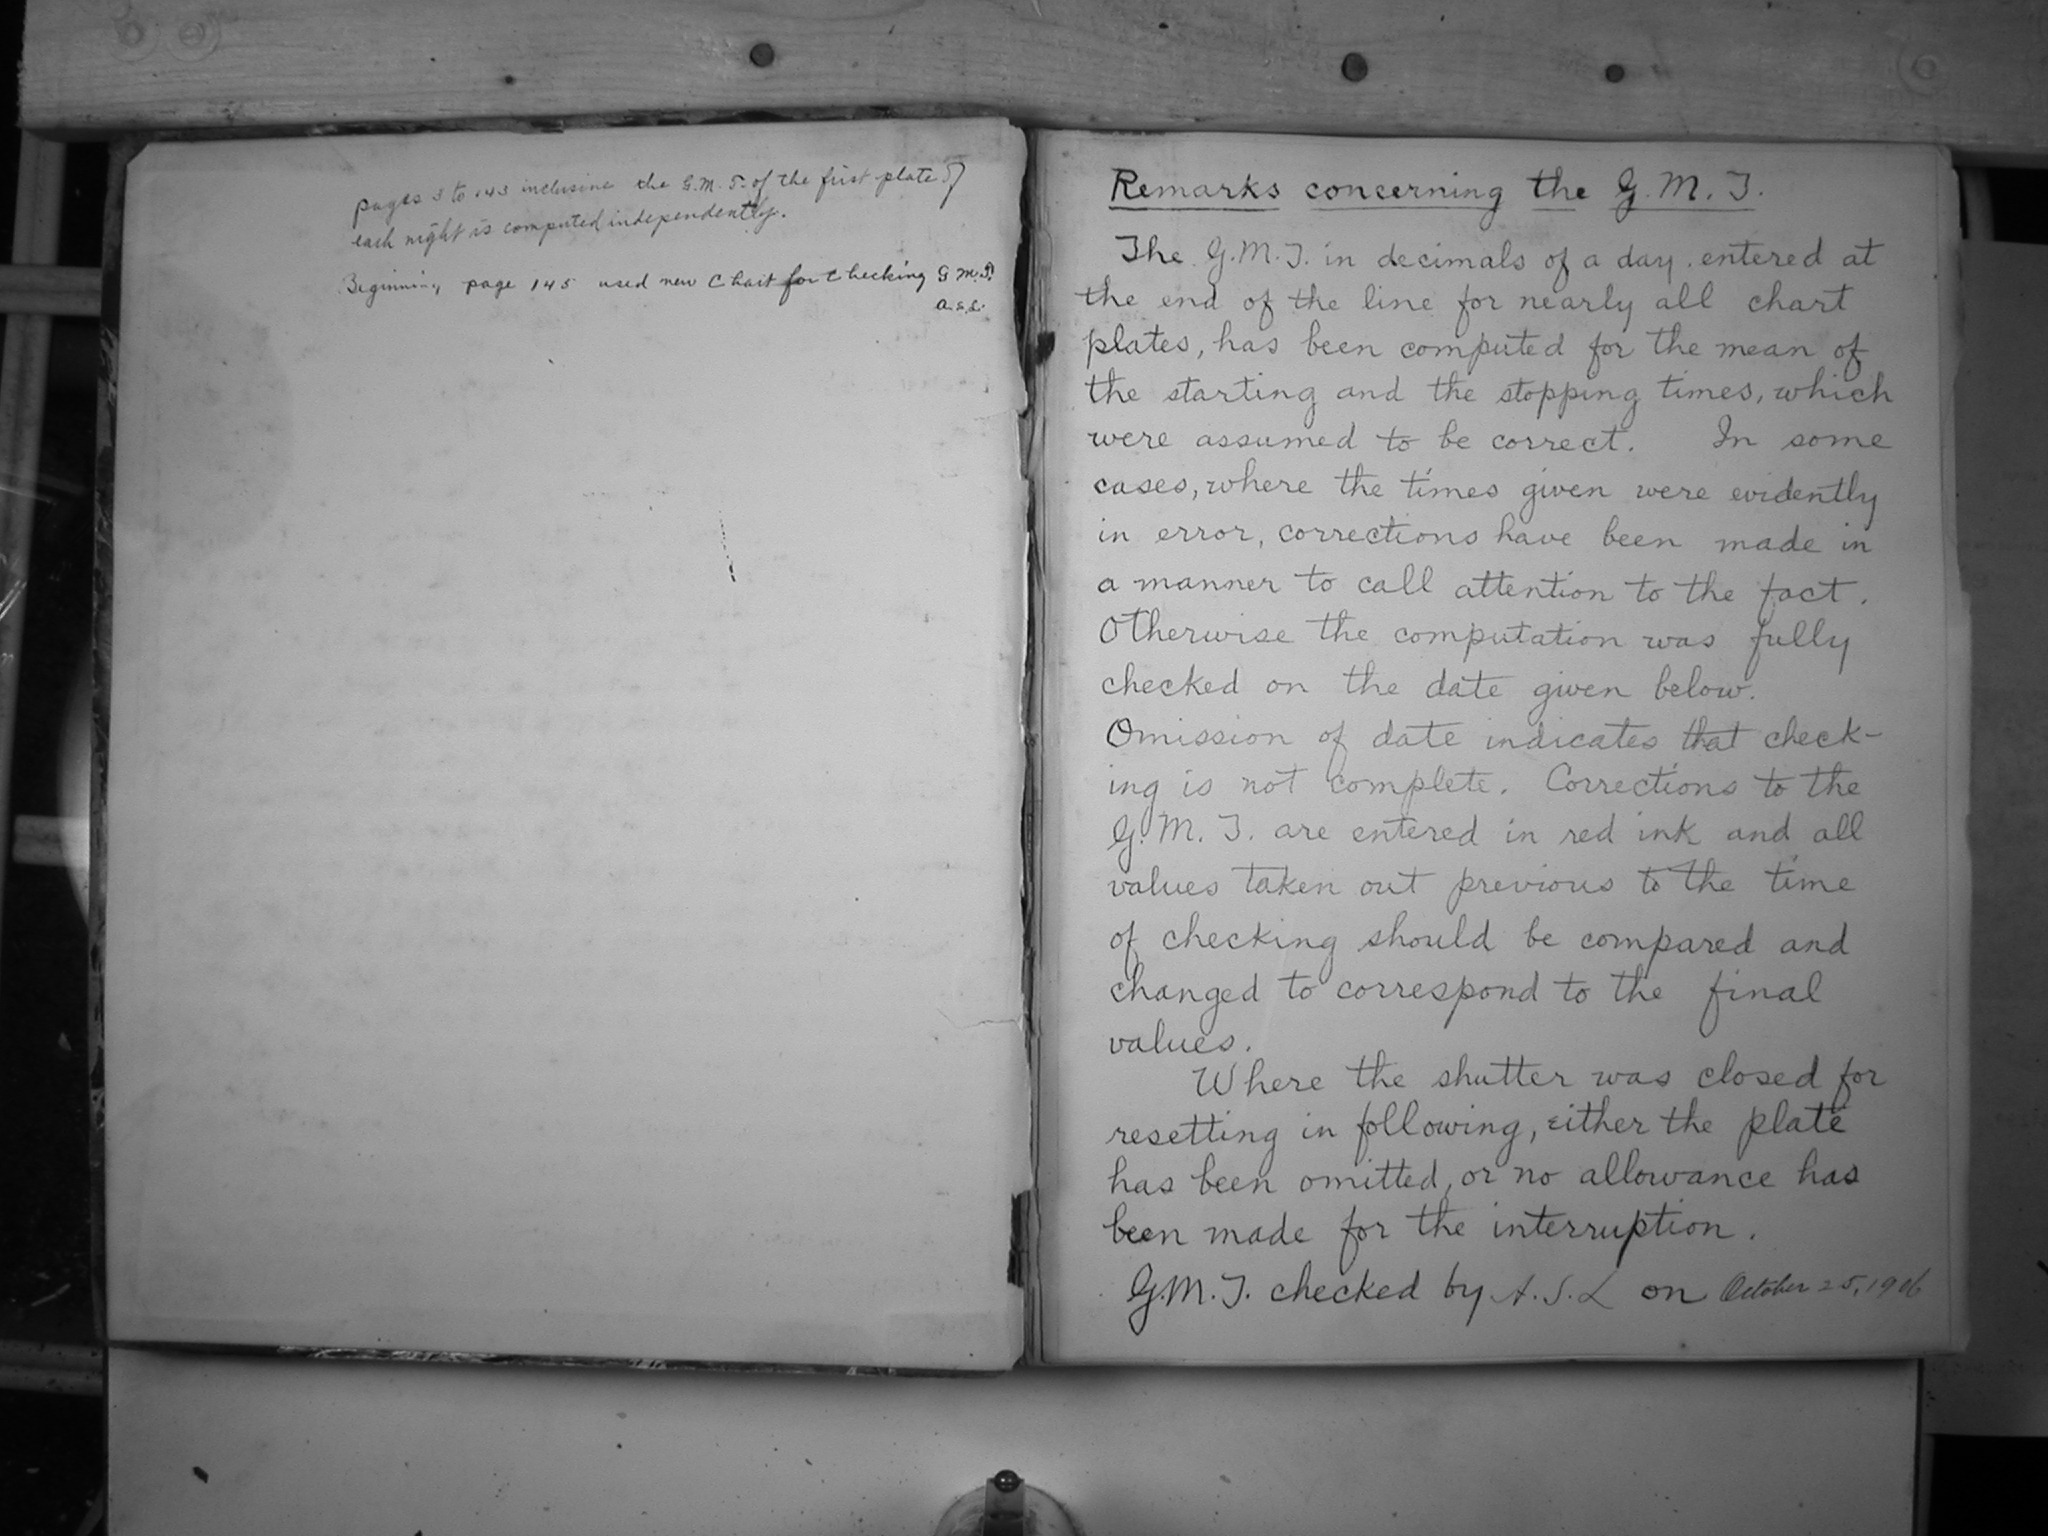 pages 3 to 143 inclusive the G.M.T. of the first plate of
each night is computed independently.
Beginning page 145 used new Chart for checking G.M.T.
A.S.L.
Remarks concerning the G.M.T.
The G.M.T. in decimals of a day entered at
the end of the line for nearly all chart
plates, has been computed for the mean of
the starting and the stopping times, which
were assumed to be correct. In some
cases, where the times given were evidently
in error, corrections have been made in
a manner to call attention to the fact.
Otherwise the computation was fully
checked on the date given below.
Omission of date indicates that check-
ing is not complete. Corrections to the
G.M.T. are entered in red ink and all
values taken out previous to the time
of checking should be compared and
changed to correspond to the final
values.
Where the shutter was closed for
resetting in following, either the plate
has been omitted, or no allowance has
been made for the interruption.
G.M.T. checked by A.S.L on October 25, 1906